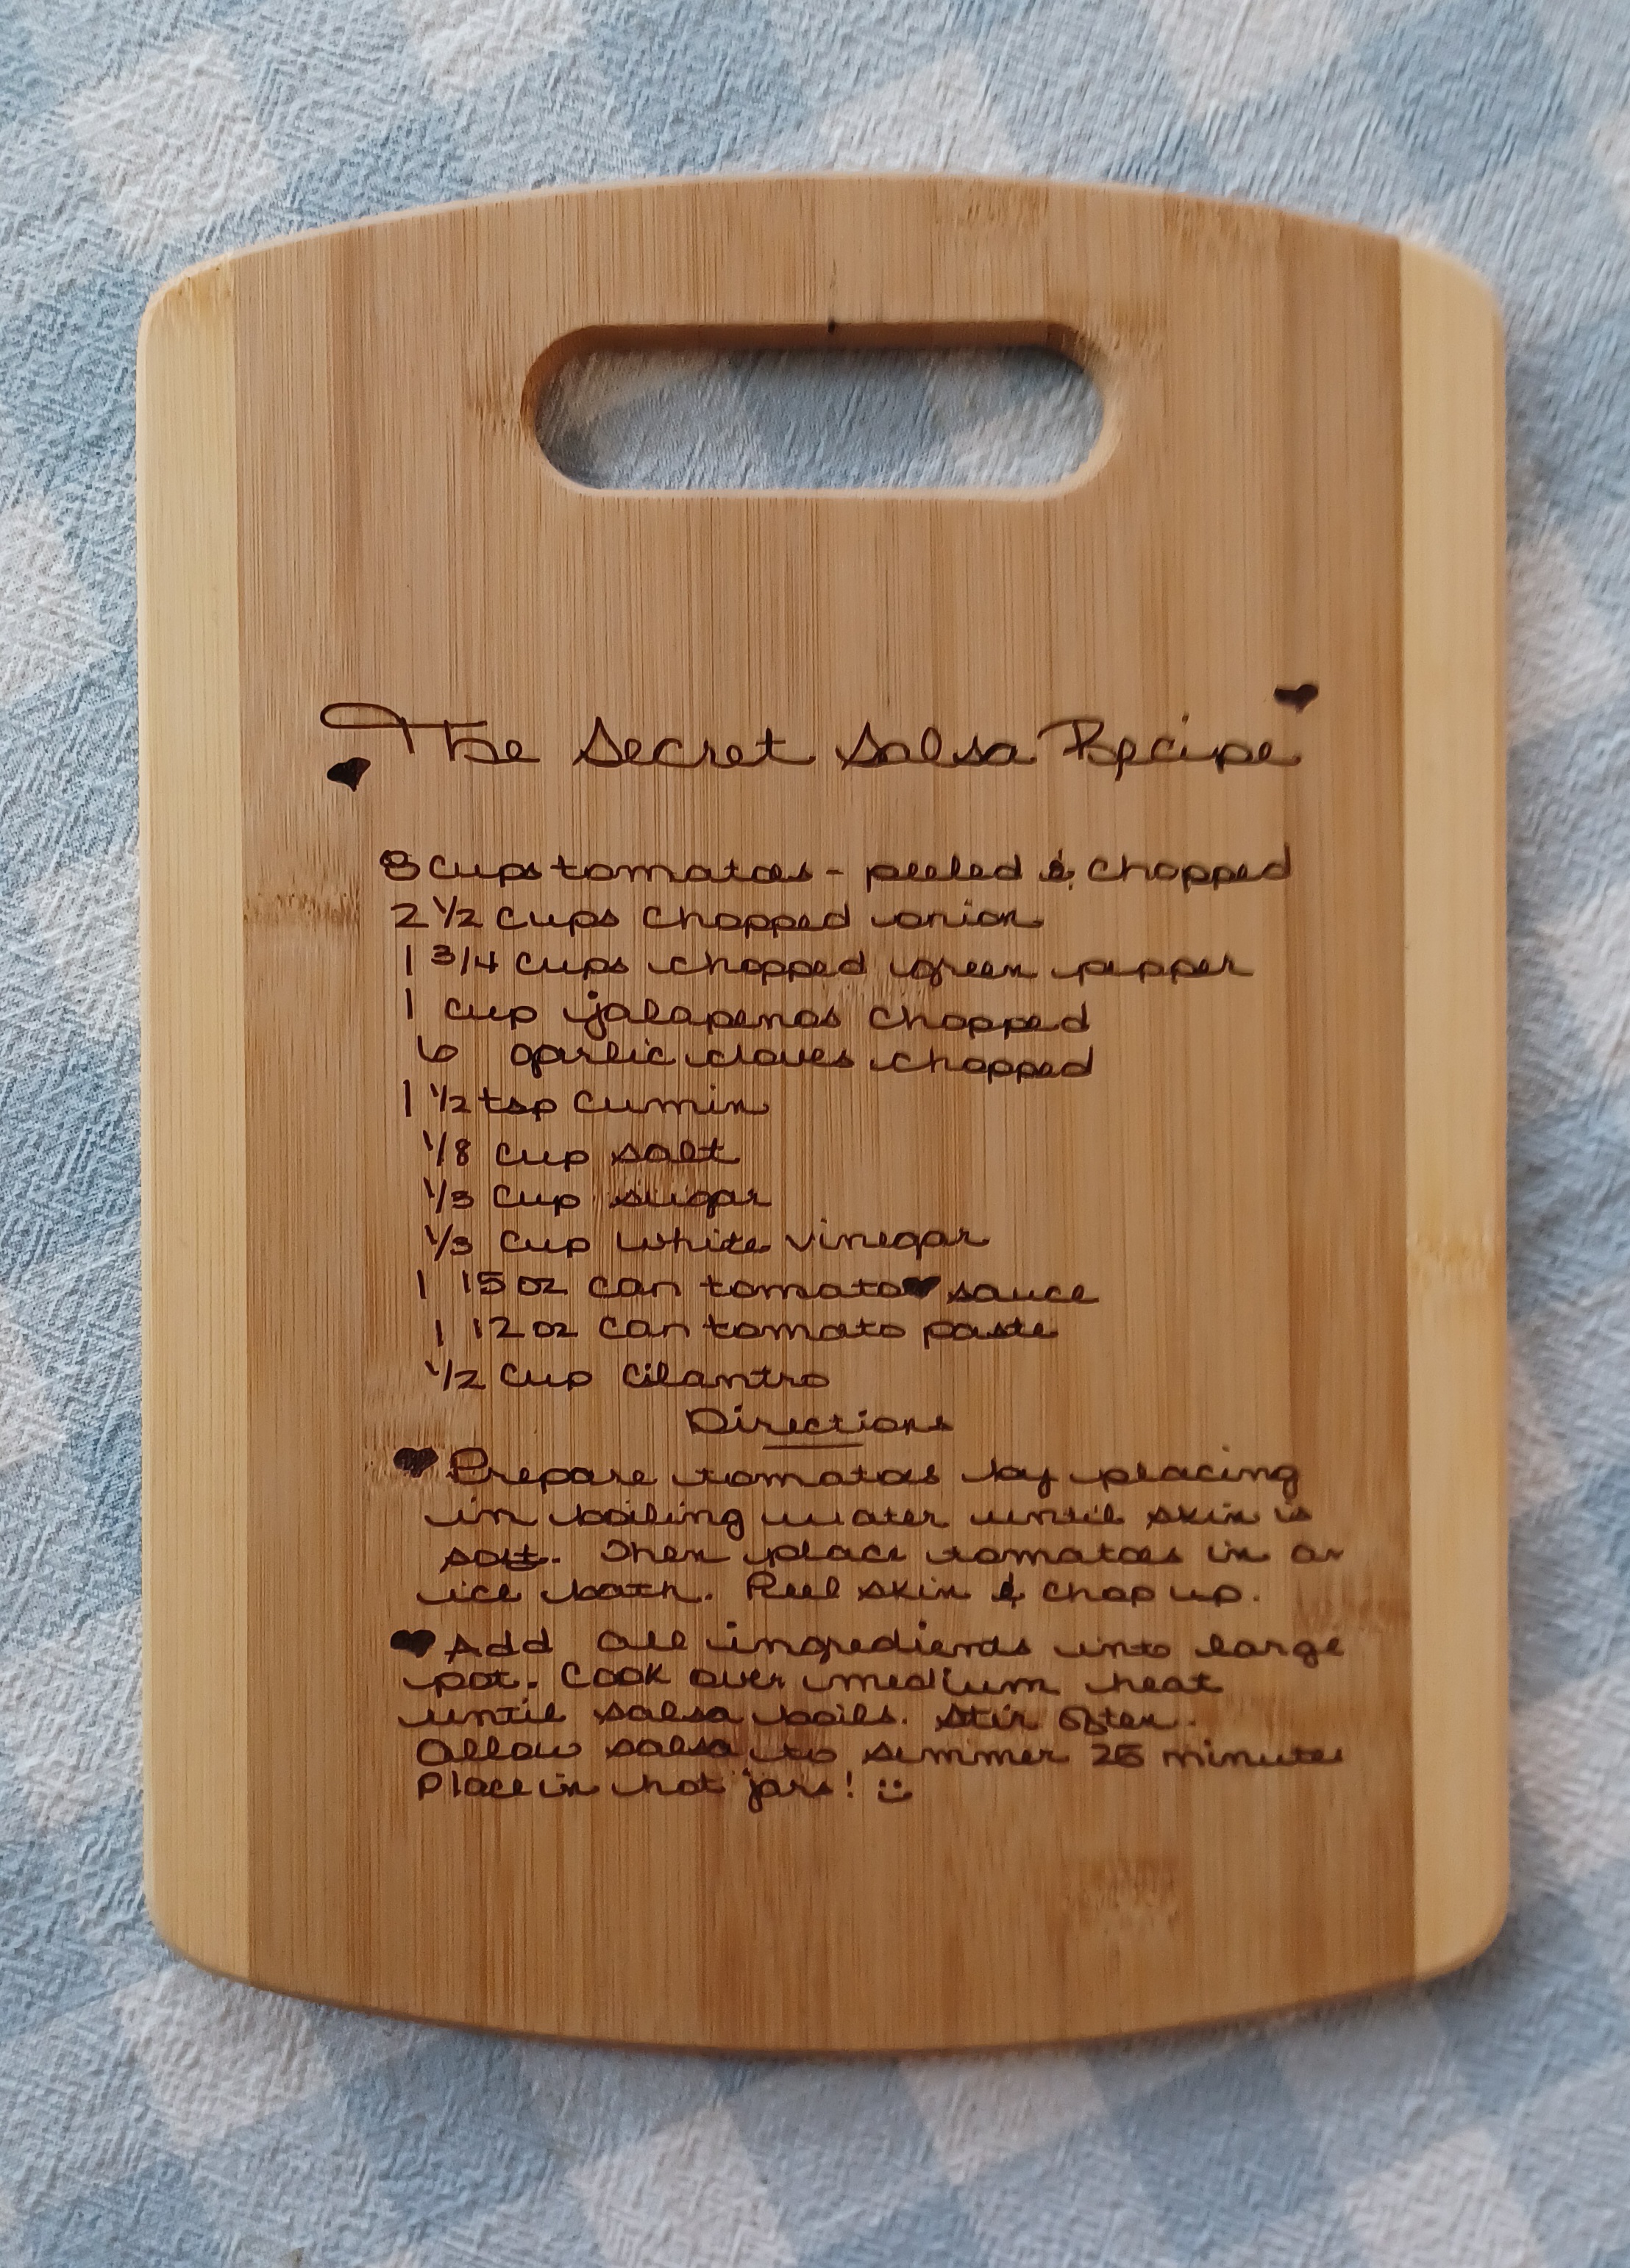 The Secret Salsa Recipe
8 cups tomatoes - peeled & chopped
2 1/2 cups chopped onion
1 3/4 cups chopped green pepper
1 cup jalapenos chopped
6 garlic cloves chopped
1 1/2 tsp cumin
1/8 cup salt
1/3 cup sugar
1/3 cup white vinegar
1 15 oz can tomato sauce
1 12 oz can tomato paste
1/2 cup cilantro
Directions
Prepare tomatoes by placing
in boiling water until skin is
soft. Then place tomatoes in an
ice bath. Peel skin & chop up.
Add all ingredients into large
pot. Cook over medium heat
until salsa boils. Stir often.
Allow salsa to simmer 25 minutes
Place in hot jars! :)